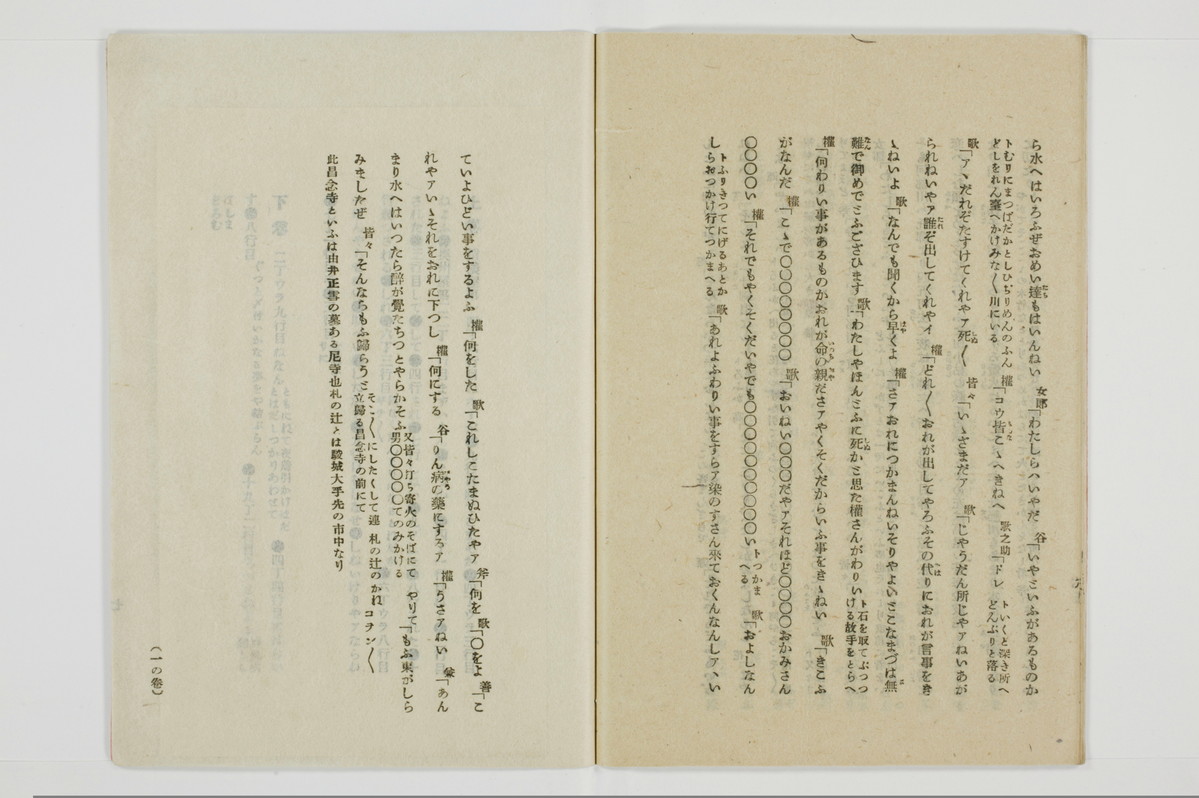 ら水へはいろふぜおめい達もはいんねい 女郎「わたしらハいやだ 谷「いやといふがあるものか
トむりにまつぱだかとしひぢりめんのふんどしをれん臺へかけみな〱川にいる 權「コウ皆こゝへきねへ 歌之助「ドレ トいくと深き所へどんぶりと落る
歌「アヽだれぞたすけてくれやア死〱 皆々「いゝさまだア 歌「じやうだん所じやアねいあが
られねいやア誰ぞ出してくれやイ 權「どれ〱おれが出してやろふその代りにおれが言事をき
ゝねいよ 歌「なんでも聞くから早くよ 權「さアおれにつかまんねいそりやよいとこなまづは無
難で御めでとふござひます 歌「わたしやほんとふに死かと思た權さんがわりい ト石を取てぶつつける故手をとらへ
權「何わりい事があるものかおれが命の親ださアやくそくだからいふ事をきゝねい 歌「きこふ
がなんだ 權「こゝで〇〇〇〇〇〇〇 歌「おいねい〇〇〇だやアそれほど〇〇〇〇おかみさん
〇〇〇〇い 權「それでもやくそくだいやでも〇〇〇〇〇〇〇〇い トつかまへる 歌「およしなん
し トふりきつてにげるあとからおつかけ行てつかまへる 歌「あれよふわりい事をすらア染のすさん來ておくんなんしアヽい
ていよひどい事をするよふ 權「何をした 歌「これしこたまぬひたやア 斧「何を 歌「〇をよ 善「こ
れやアいゝそれをおれに下つし 權「何にする 谷「りん病の藥にすろア 權「うさアねい 榮「あん
まり水へはいつたら醉が覺たちつとやらかそふ 又皆々打ち寄火のそばにて男〇〇〇〇〇てのみかける やりて「もふ東がしら
みましたぜ 皆々「そんならもふ歸らうと そこ〱にしたくして連立歸る昌念寺の前にて 札の辻のかね コヲン〱
此昌念寺といふは由井正雪の墓ある尼寺也札の辻とは駿城大手先の市中なり
(一の卷)